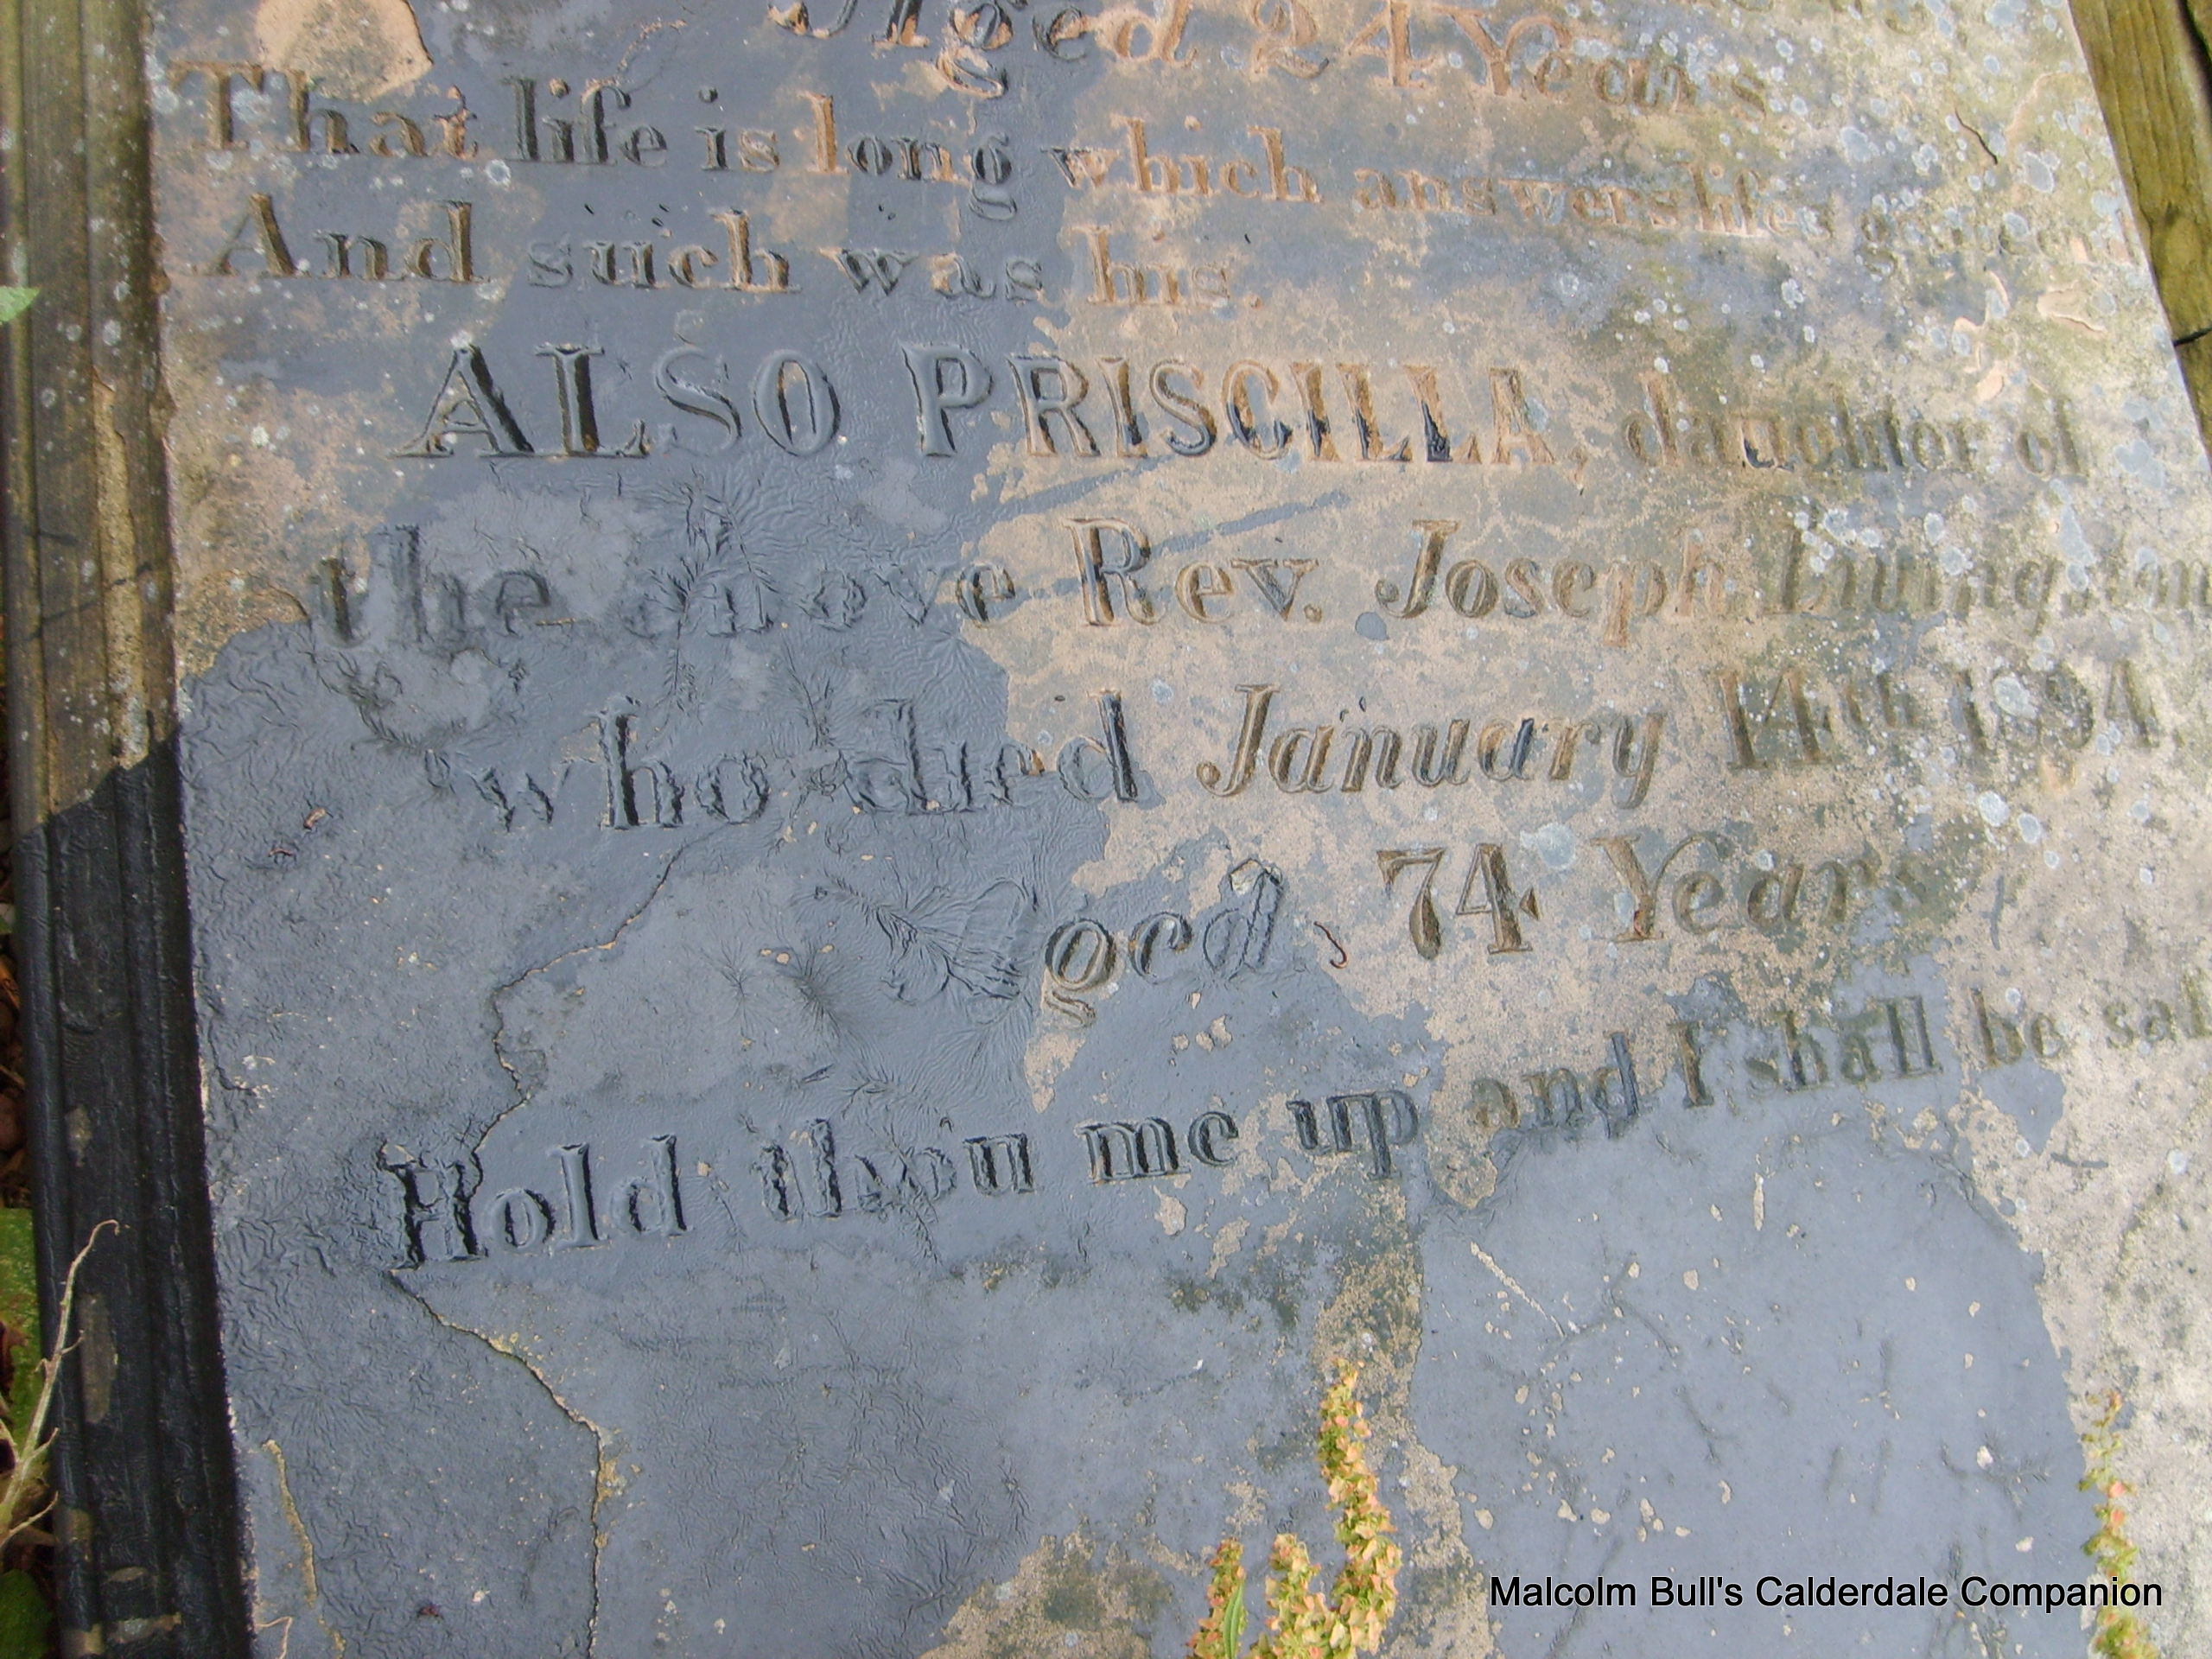 Aged 24 Years
That life is long which answers life's great end
And such was his.
ALSO PRISCILLA, daughter of
the above Rev. Joseph
who died January 14th 1894
Aged 74 Years
Hold thou me up and I shall be saf
Malcolm Bull's Calderdale Companion